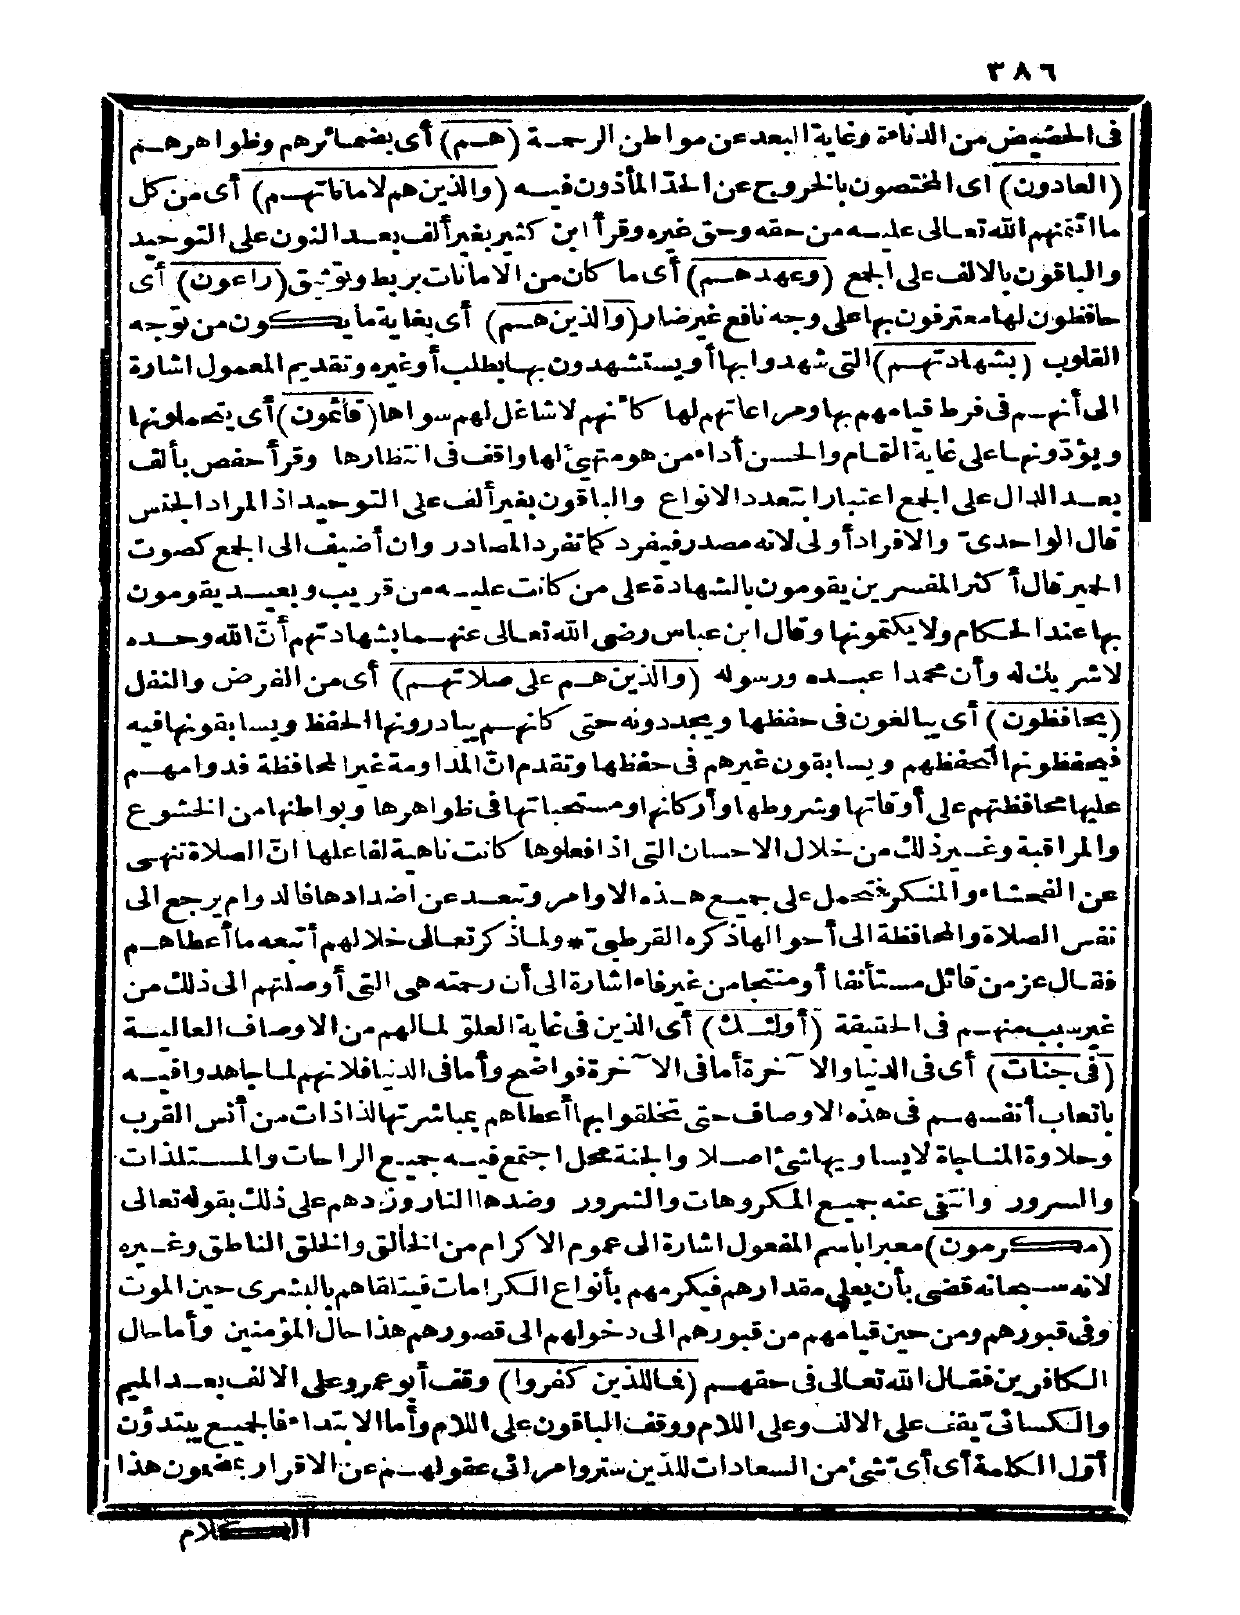 ٣٨٦
فى الحضيض من الدناءة وغاية البعد عن مواطن الرحمة (هم) أى بضمائرهم وظواهرهم
(العادون) اى المختصون بالخروج عن الحدّ المأذون فيه (والذين هم لاماناتهم) أى من كل
ما ائتمنهم الله تعالى عليه من حقه وحق غيره وقرأ ابن كثير بغير ألف بعد النون على التوحيد
والباقون بالالف على الجمع (وعهدهم) أى ما كان من الامانات بربط وتوثيق (راعون) أى
حافظون لها معترفون بها على وجه نافع غير ضار (والذين هم) أى بغاية ما يكون من توجه
القلوب (بشهادتهم) التى شهدوا بها أو يستشهدون بها بطلب أو غيره وتقديم المعمول اشارة
الى أنهم فى فرط قيامهم بها ومراعاتهم لها كأنهم لا شاغل لهم سواها (قائمون) أى يتحملونها
ويؤدّونها على غاية التمام والحسن أداء من هو متهيئ لها واقف فى انتظارها وقرأ حفص بألف
بعد الدال على الجمع اعتبارا بتعدد الانواع والباقون بغير ألف على التوحيد اذ المراد الجنس
قال الواحدىّ والافراد أولى لانه مصدر فيفرد كما تفرد المصادر وان أضيف الى الجمع كصوت
الحمير قال أكثر المفسرين يقومون بالشهادة على من كانت عليه من قريب وبعيد يقومون
بها عند الحكام ولا يكتمونها وقال ابن عباس رضى الله تعالى عنهما بشهادتهم أنّ الله وحده
لا شريك له وأن محمدا عبده ورسوله (والذين هم على صلاتهم) أى من الفرض والنفل
(يحافظون) أى يبالغون فى حفظها ويجددونه حتى كأنهم يبادرونها الحفظ ويسابقونها فيه
فيحفظونها لتحفظهم ويسابقون غيرهم فى حفظها وتقدم انّ المداومة غير المحافظة فدوامهم
عليها محافظتهم على أوقاتها وشروطها وأركانها ومستحباتها فى ظواهرها وبواطنها من الخشوع
والمراقبة وغير ذلك من خلال الاحسان التى اذا فعلوها كانت ناهية لفاعلها انّ الصلاة تنهى
عن الفحشاء والمنكر فتحمل على جميع هذه الاوامر وتبعد عن اضدادها فالدوام يرجع الى
نفس الصلاة والمحافظة الى أحوالها ذكره القرطبىّ * ولما ذكر تعالى خلالهم أتبعه ما أعطاهم
فقال عز من قائل مستأنفا أو منتجا من غير فاء اشارة الى أن رحمته هى التى أوصلتهم الى ذلك من
غير سبب منهم فى الحقيقة (أولئك) أى الذين فى غاية العلو لما لهم من الاوصاف العالية
(فى جنات) أى فى الدنيا والآخرة أما فى الآخرة فواضح وأما فى الدنيا فلانهم لما جاهدوا فيه
باتعاب أنفسهم فى هذه الاوصاف حتى تخلقوا بها أعطاهم بمباشرتها لذاذات من أنس القرب
وحلاوة المناجاة لا يساويها شئ اصلا والجنة محل اجتمع فيه جميع الراحات والمستلذات
والسرور وانتفى عنه جميع المكروهات والشرور وضدها النار وزدهم على ذلك بقوله تعالى
(مكرمون) معبرا باسم المفعول اشارة الى عموم الاكرام من الخالق والخلق الناطق وغيره
لانه سبحانه قضى بأن يعلى مقدارهم فيكرمهم بأنواع الكرامات فيتلقاهم بالبشرى حين الموت
وفى قبورهم ومن حين قيامهم من قبورهم الى دخولهم الى قصورهم هذا حال المؤمنين وأما حال
الكافرين فقال الله تعالى فى حقهم (فمال الذين كفروا) وقف أبو عمرو على الالف بعد الميم
والكسائىّ يقف على الالف وعلى اللام ووقف الباقون على اللام وأما الابتداء فالجميع يبتدؤن
أوّل الكلمة أى أىّ شئ من السعادات للذين ستروا مرائى عقولهم عن الاقرار بمضمون هذا
الكلام